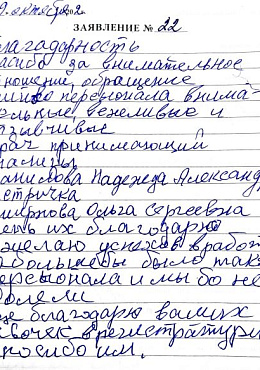 октября 2
ЗАЯВЛЕНИЕ № 22
лагодарность
асибо за внимательное
ношение, обращение
персонала внима-
ельные, вежливые и
зывчивые
рач принимающий
анализы
Надежда Александ
стричка
мирнова Ольга Сергеевна
ень их благодарю
желаю успехов в работ
обольше бы было так
ерсонала и мы бо не
олели
ще благодарю ваших
вочек в регистратур
пасибо им.